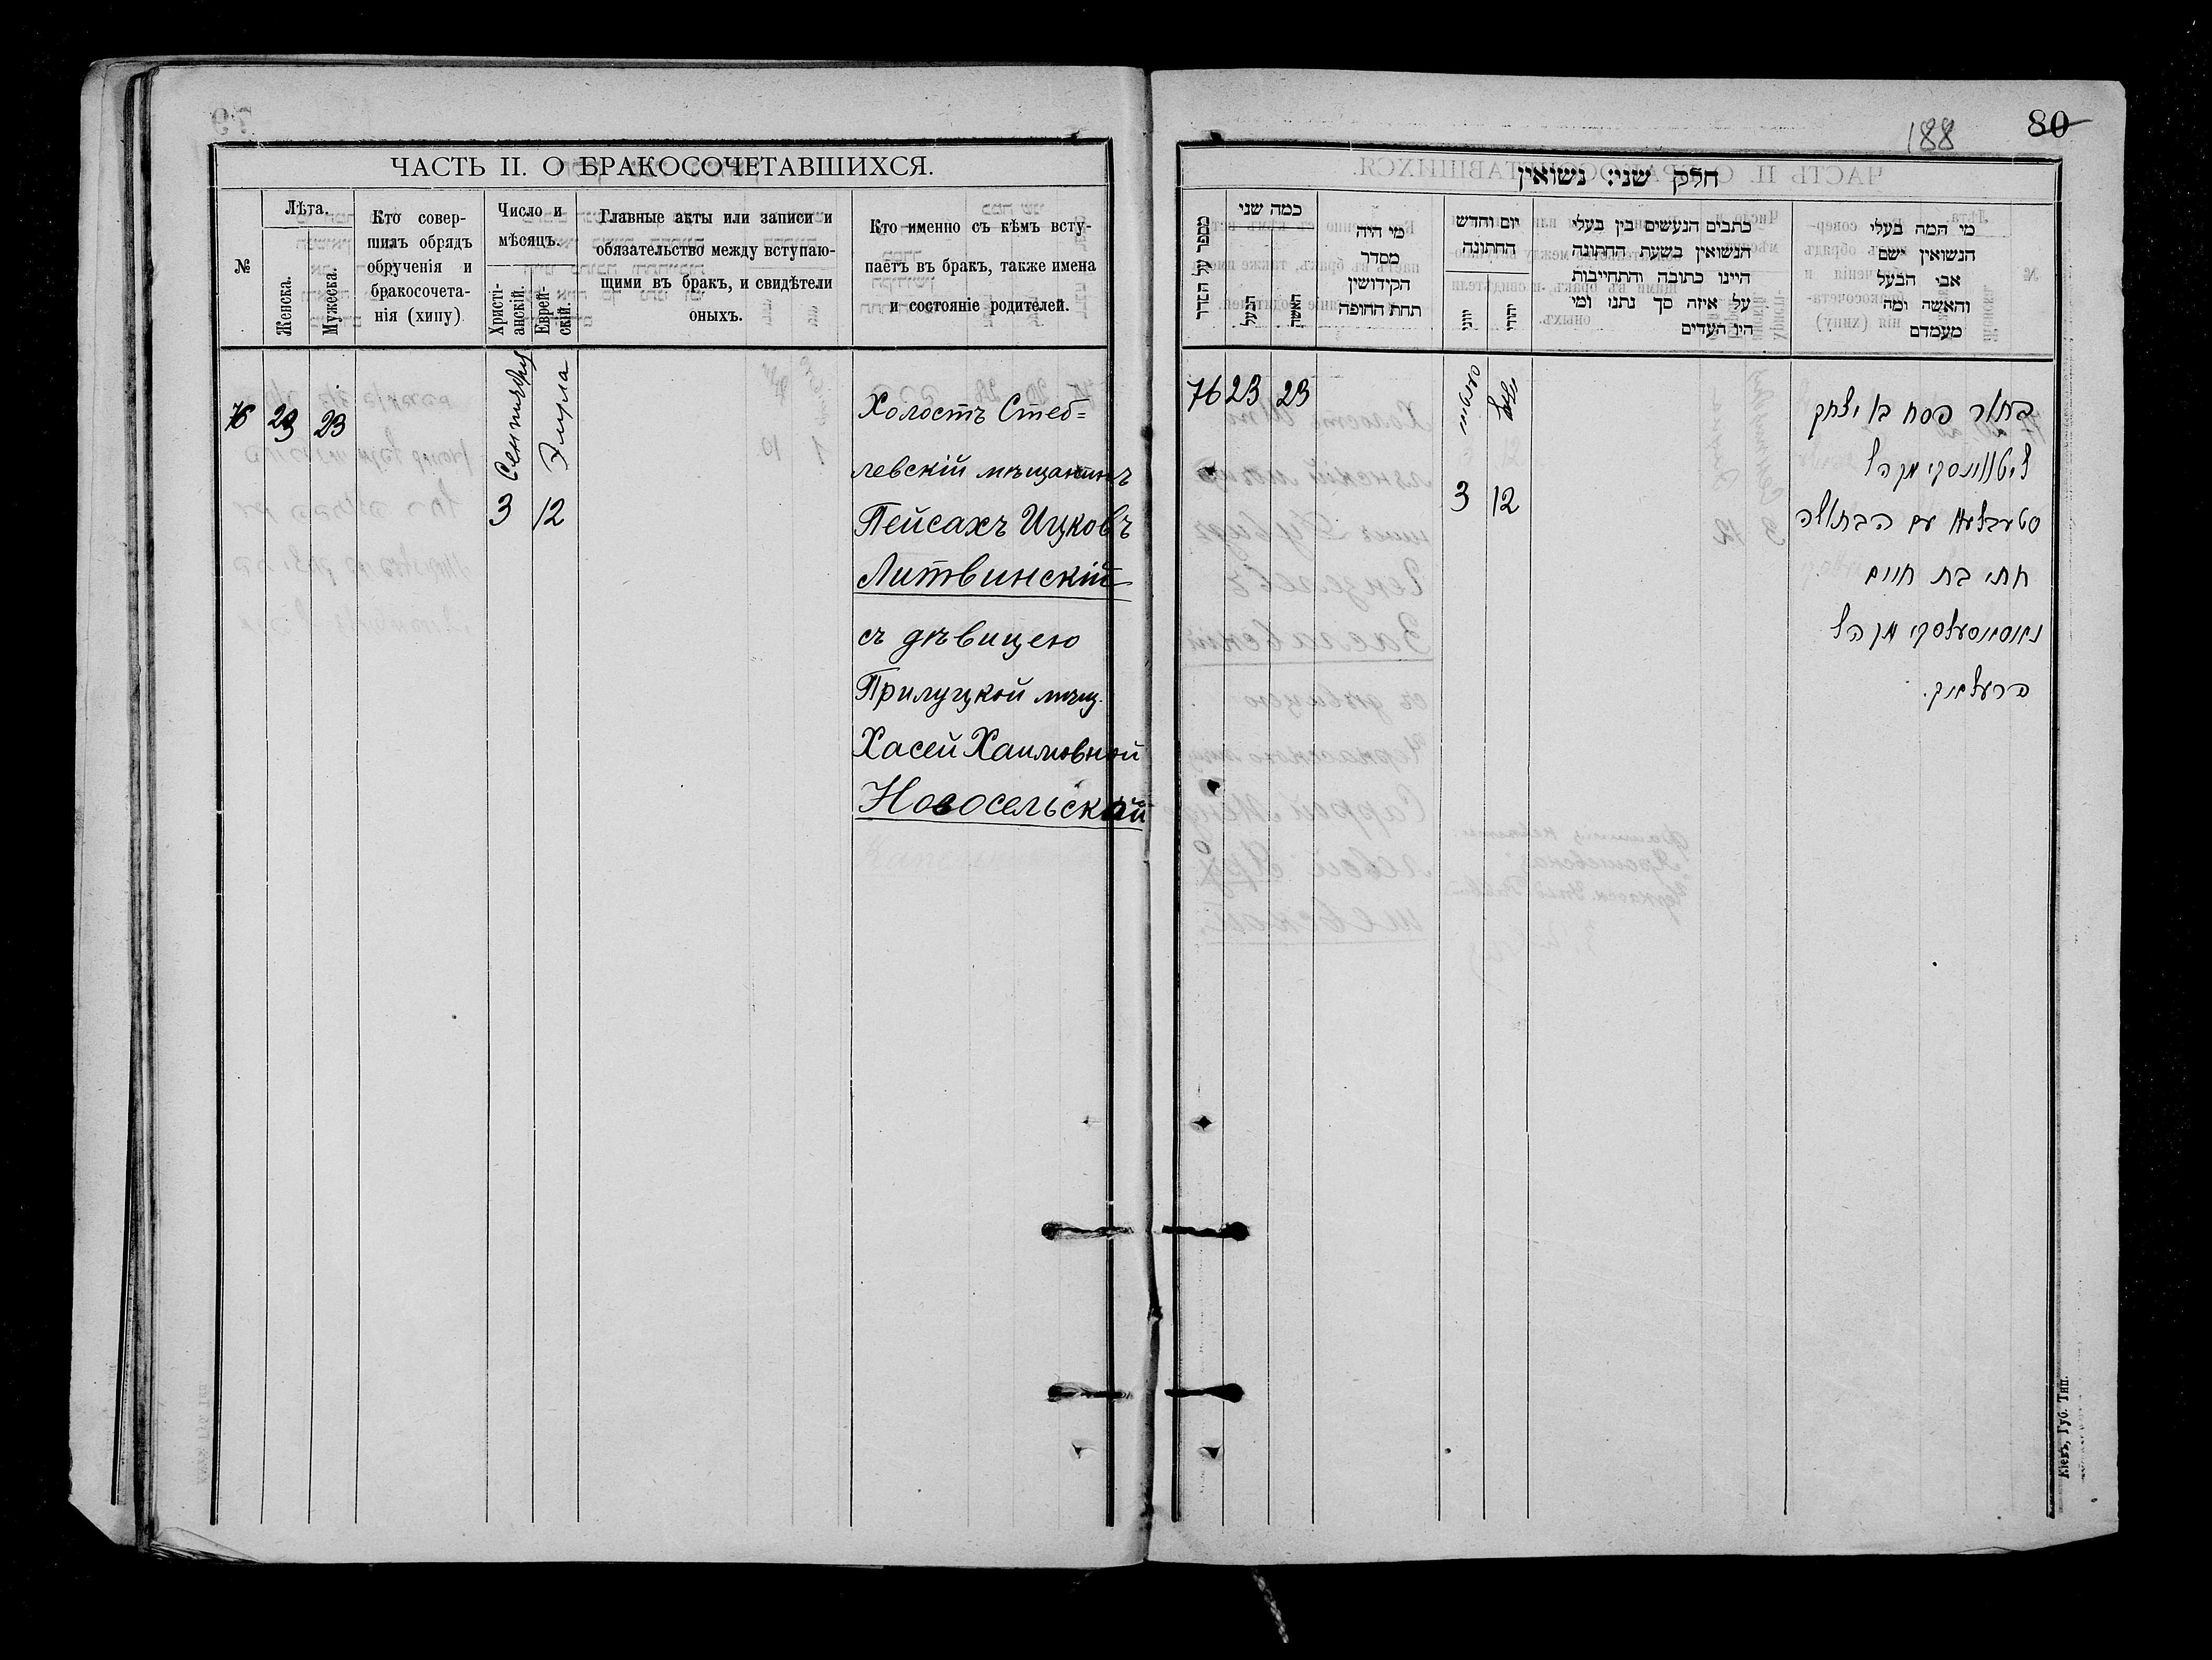 ЧАСТЬ II. О БРАКОСОЧЕТАВШИХСЯ.
№
Лѣта.
Женска.
Мужеска.
Кто совер-
шилъ обрядъ
обрученія и
бракосочета-
нія (хипу)
Число и
мѣсяцъ.
Христі-
анскій.
Еврей-
скій.
Главные акты или записи и
обязательство между вступаю-
щими въ бракъ, и свидѣтели
оныхъ.
Кто именно съ кѣмъ всту-
паетъ въ бракъ, также имена
и состояніе родителей.
76 23 23
Сентября
3
Элула
12
Холостъ Стеб=
левскій мѣщанинъ
Пейсахъ Ицковъ
Литвинскій
съ дѣвицею
Прилуцкой мѣщ.
Хасей Хаимовной
Новосельской
188
80
חלק שני: נשואין
מספר על הסדר
כמה שני
הבעל
האשה
מי היה
מסדר
הקידושין
תחת החופה
יום וחדש
החתונה
יווני
יהודי
כתבים הנעשים בין בעלי
הנשואין בשעת החתונה
היינו כתובה והתחייבות
על איזה סך נתנו ומי
היו העדים
מי המה בעלי
הנשואין ושם
אבי הבעל
והאשה ומה
מעמדם
76 23 23
3
אלול
12
בחור פסח בן יצחק
ליטווינסקי מן קהל
סטעבלעוו עם הבתולה
חסי בת חיים
נאוואסעלסקי מן קהל
פרעלוק.
Кіевъ, Губ. Тип.